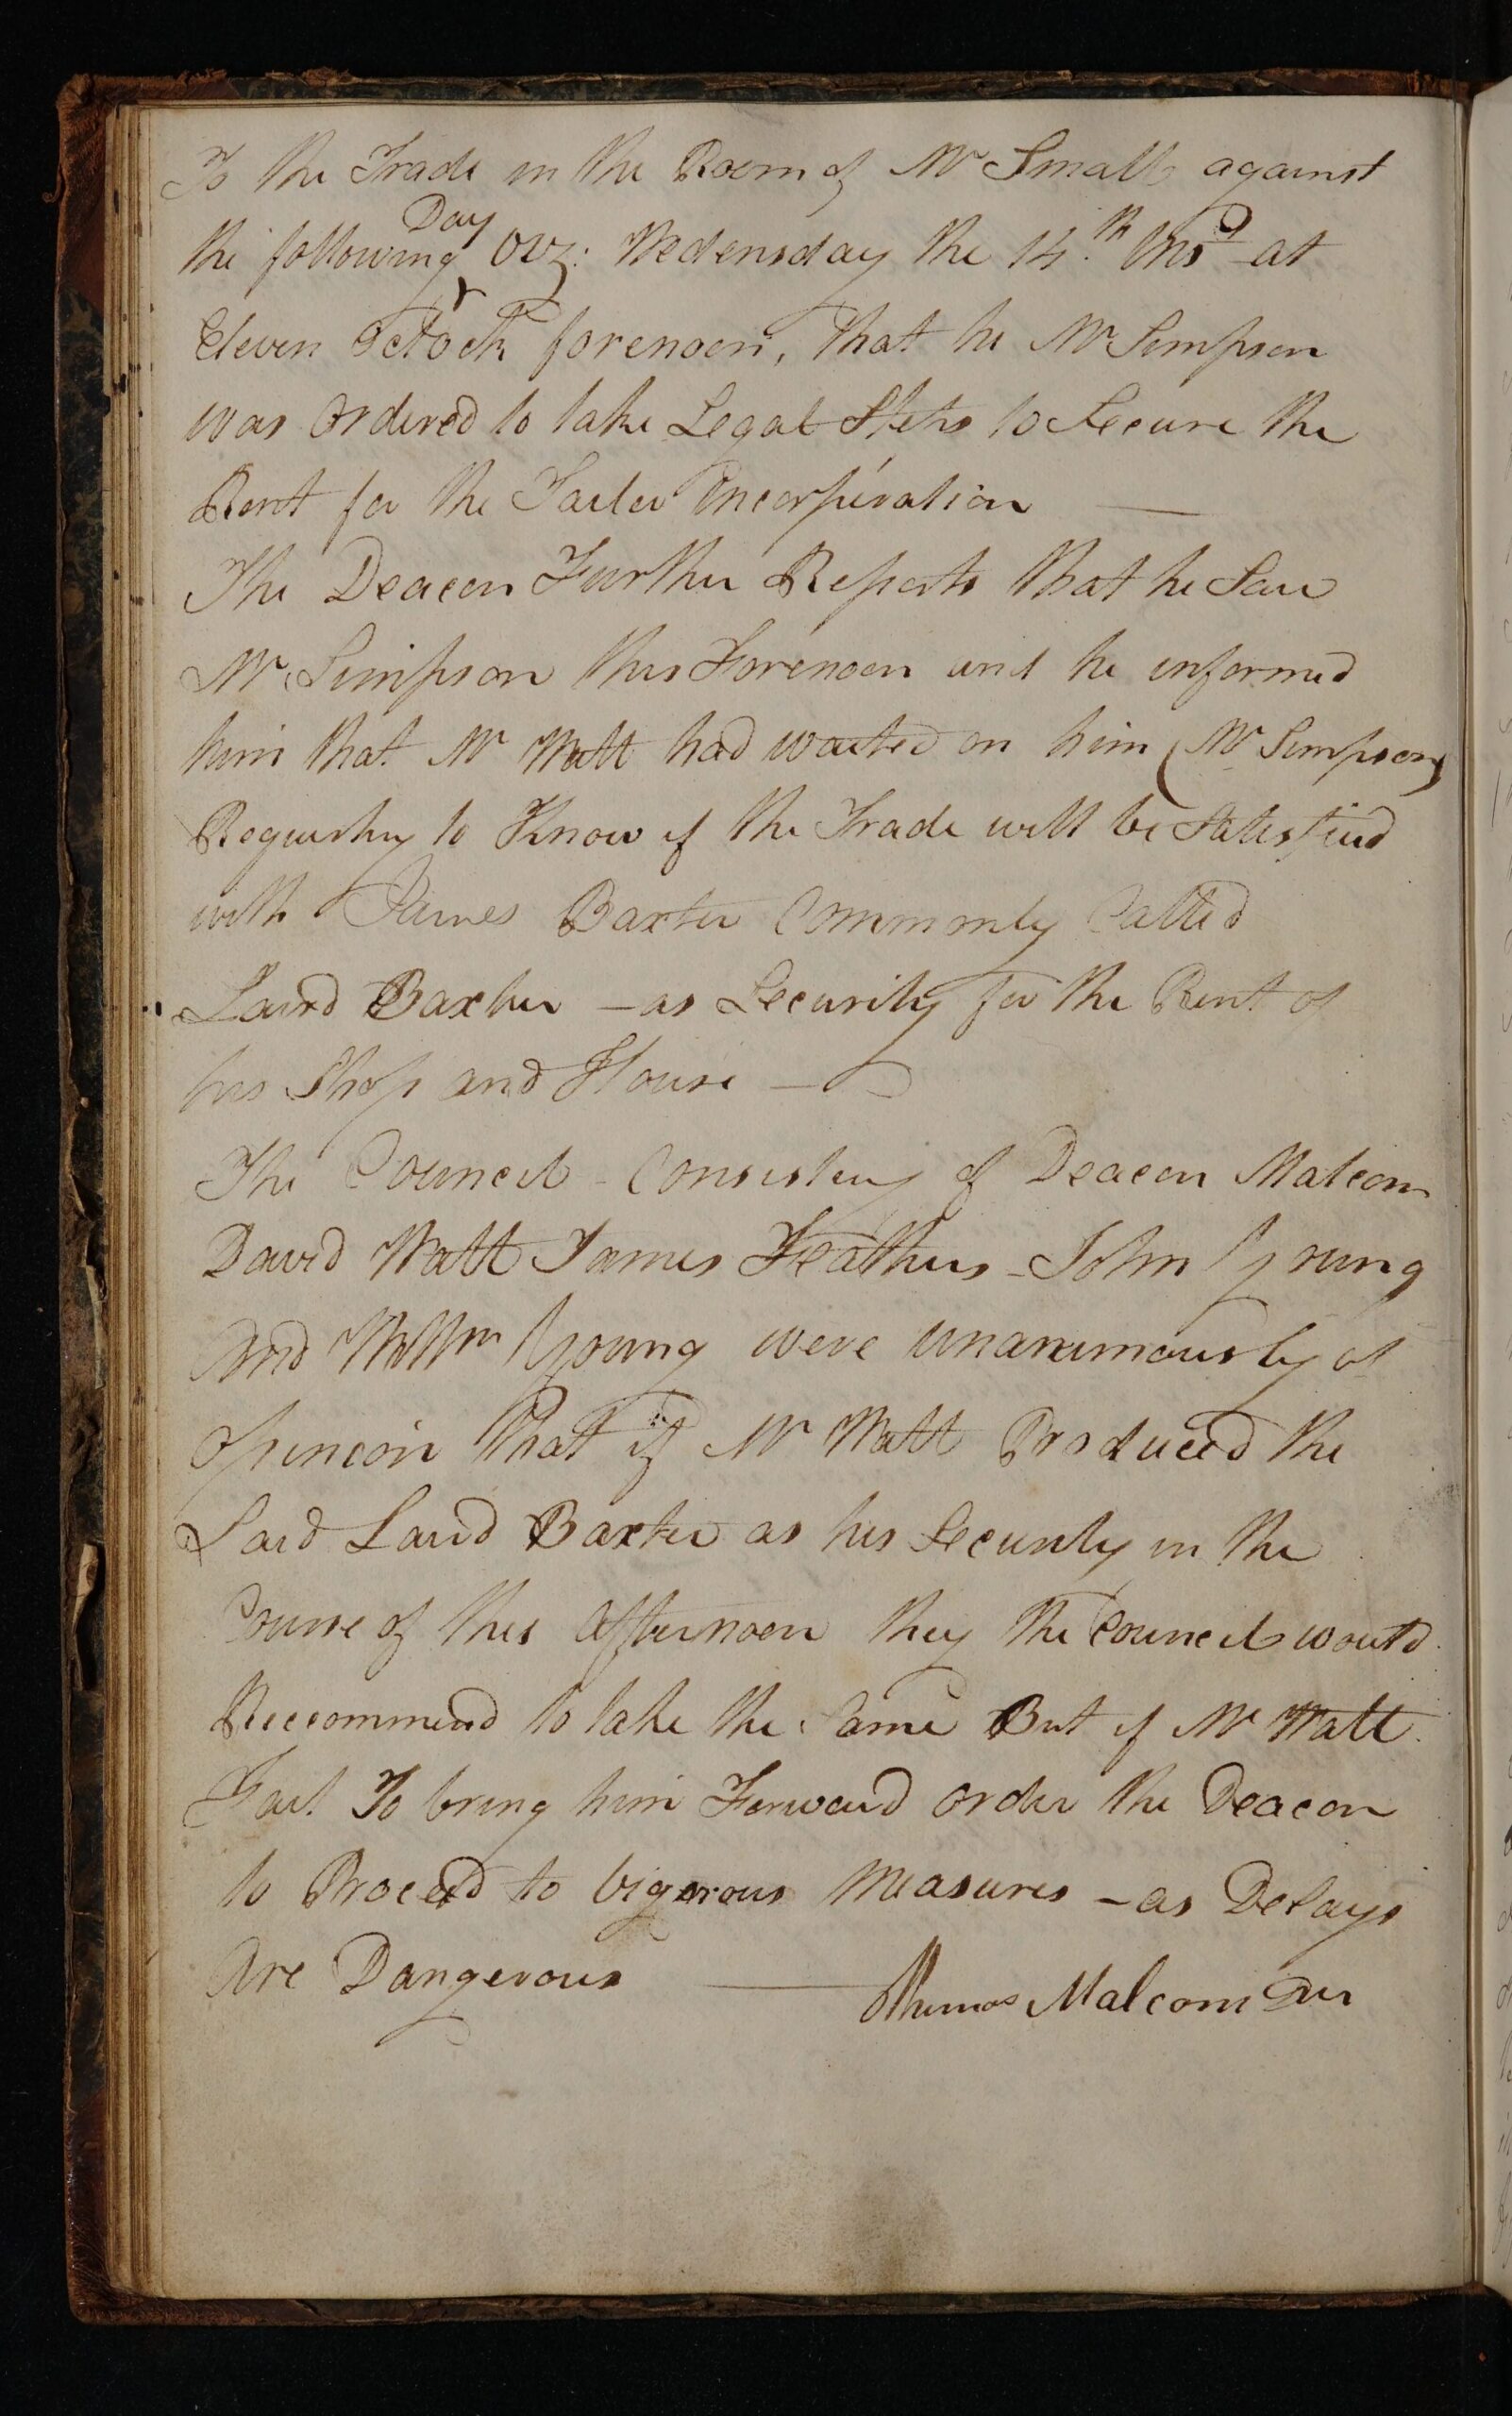 To the Trade in the Room of Mr Small against
the following Day viz: Wedensday the 14th Inst at
Eleven oClock forenoon, that he Mr Simpson
was ordered to take Legal Steps to Secure the
Rent for the Tailer Incorporation —
The Deacon Further Reports that he Saw
Mr Simpson this Forenoon and he informed
him that Mr Watt had waited on him (Mr Simpson)
Requesting to Know if the Trade will be Satisfied
with James Baxter Commonly Called
Laird Baxter – as Security for the Rent of
his Shop and House —
The Council – Consisting of Deacon Malcom
David Watt James Feathers – John Young
And Willm Young were unanimously of
opinion that if Mr Watt Produced the
Said Laird Baxter as his Security in the
Course of this afternoon they the Council would
Reccommend to take the Same But if Mr Watt
Fail To bring him Forward order the Deacon
to Proceed to vigorous Measures – as Delays
Are Dangerous — Thomas Malcom Dn